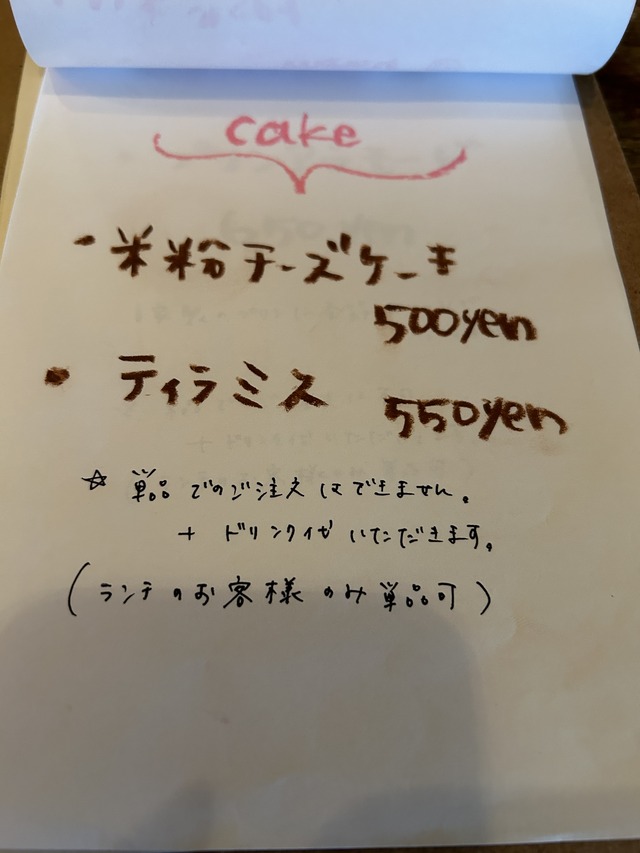 cake
・米粉チーズケーキ
500yen
・ティラミス
550yen
☆ 単品でのご注文はできません。
+ ドリンク代いただきます。
(ランチのお客様のみ単品可)